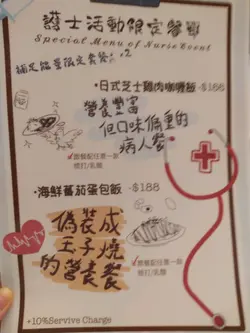 護士活動限定餐單
Special Menu of Nurse Event
補足能量限定套餐 x2
•日式芝士雞肉咖喱飯-$166
營養豐富
但口味偏重的
病人餐
跟餐配任意一款
梳打/乳酪
•海鮮蕃茄蛋包飯-$188
偽裝成
王子燒
的營養餐
跟餐配任意一款
梳打/乳酪
+10%Servive Charge